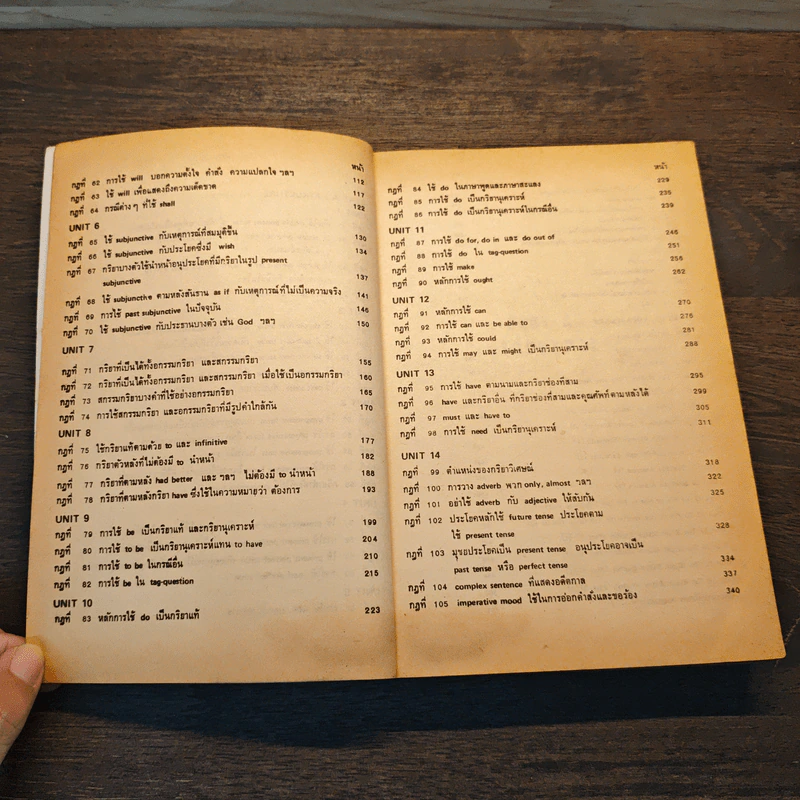 หน้า
กฎที่ 62 การใช้ will บอกความตั้งใจ คำสั่ง ความแปลกใจ ฯลฯ 112
กฎที่ 63 ใช้ will เพื่อแสดงถึงความเด็ดขาด 117
กฎที่ 64 กรณีต่างๆ ที่ใช้ shall 122
UNIT 6
กฎที่ 65 ใช้ subjunctive กับเหตุการณ์ที่สมมุติขึ้น 130
กฎที่ 66 ใช้ subjunctive กับประโยคซึ่งมี wish 134
กฎที่ 67 กริยาบางตัวใช้นำหน้าอนุประโยคที่มีกริยาในรูป present
subjunctive 137
กฎที่ 68 ใช้ subjunctive ตามหลังสันธาน as if กับเหตุการณ์ที่ไม่เป็นความจริง 141
กฎที่ 69 การใช้ past subjunctive ในปัจจุบัน 146
กฎที่ 70 ใช้ subjunctive กับประธานบางตัว เช่น God ฯลฯ 150
UNIT 7
กฎที่ 71 กริยาที่เป็นได้ทั้งอกรรมกริยา และสกรรมกริยา 155
กฎที่ 72 กริยาที่เป็นได้ทั้งอกรรมกริยา และสกรรมกริยา เมื่อใช้เป็นอกรรมกริยา 160
กฎที่ 73 สกรรมกริยาบางคำที่ใช้อย่างอกรรมกริยา 165
กฎที่ 74 การใช้สกรรมกริยา และอกรรมกริยาที่มีรูปคำใกล้กัน 170
UNIT 8
กฎที่ 75 ใช้กริยาแท้ตามด้วย to และ infinitive 177
กฎที่ 76 กริยาตัวหลังที่ไม่ต้องมี to นำหน้า 182
กฎที่ 77 กริยาที่ตามหลัง had better และ ฯลฯ ไม่ต้องมี to นำหน้า 188
กฎที่ 78 กริยาที่ตามหลังกริยา have ซึ่งใช้ในความหมายว่า ต้องการ 193
UNIT 9
กฎที่ 79 การใช้ be เป็นกริยาแท้ และกริยานุเคราะห์ 199
กฎที่ 80 การใช้ to be เป็นกริยานุเคราะห์แทน to have 204
กฎที่ 81 การใช้ to be ในกรณีอื่น 210
กฎที่ 82 การใช้ be ใน tag-question 215
UNIT 10
กฎที่ 83 หลักการใช้ do เป็นกริยาแท้ 223
หน้า
กฎที่ 84 ใช้ do ในภาษาพูดและภาษาสแลง 229
กฎที่ 85 การใช้ do เป็นกริยานุเคราะห์ 235
กฎที่ 86 การใช้ do เป็นกริยานุเคราะห์ในกรณีอื่น 239
UNIT 11
กฎที่ 87 การใช้ do for, do in และ do out of 246
กฎที่ 88 การใช้ do ใน tag-question 251
กฎที่ 89 การใช้ make 256
กฎที่ 90 หลักการใช้ ought 262
UNIT 12
กฎที่ 91 หลักการใช้ can 270
กฎที่ 92 การใช้ can และ be able to 276
กฎที่ 93 หลักการใช้ could 281
กฎที่ 94 การใช้ may และ might เป็นกริยานุเคราะห์ 288
UNIT 13
กฎที่ 95 การใช้ have ตามนามและกริยาช่องที่สาม 295
กฎที่ 96 have และกริยาอื่น ที่กริยาช่องที่สามและคุณศัพท์ตามหลังได้ 299
กฎที่ 97 must และ have to 305
กฎที่ 98 การใช้ need เป็นกริยานุเคราะห์ 311
UNIT 14
กฎที่ 99 ตำแหน่งของกริยาวิเศษณ์ 318
กฎที่ 100 การวาง adverb พวก only, almost ฯลฯ 322
กฎที่ 101 อย่าใช้ adverb กับ adjective ให้สับกัน 325
กฎที่ 102 ประโยคหลักใช้ future tense ประโยคตาม
ใช้ present tense 328
กฎที่ 103 มุขยประโยคเป็น present tense อนุประโยคอาจเป็น
past tense หรือ perfect tense 334
กฎที่ 104 complex sentence ที่แสดงอดีตกาล 337
กฎที่ 105 imperative mood ใช้ในการออกคำสั่งและขอร้อง 340